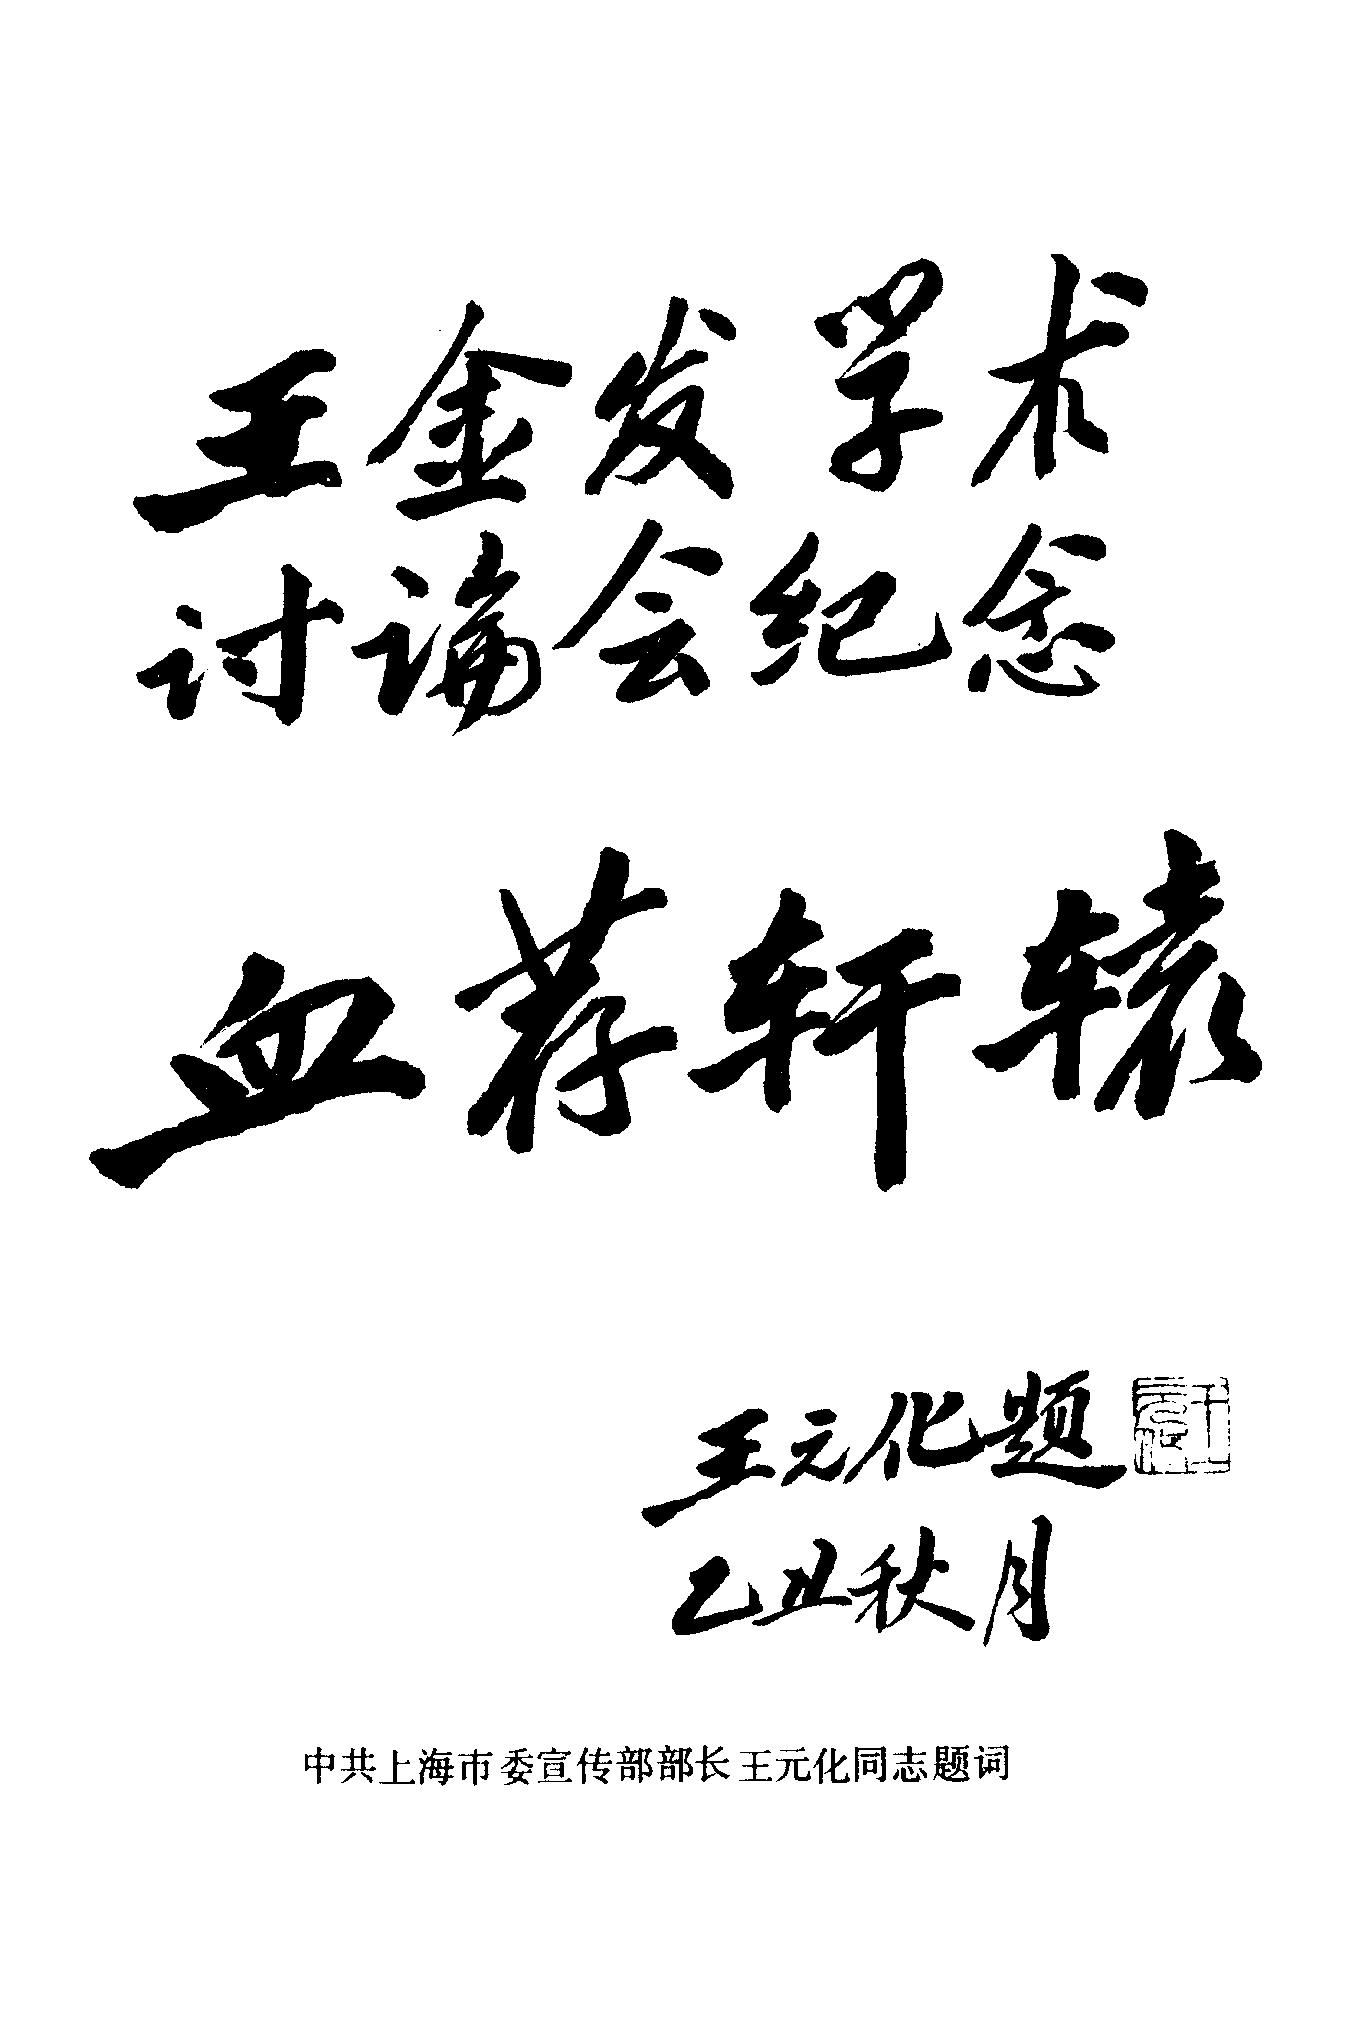 王金发学术
讨论会纪念
血荐轩辕
王元化题
王元化
乙丑秋月
中共上海市委宣传部部长王元化同志题词